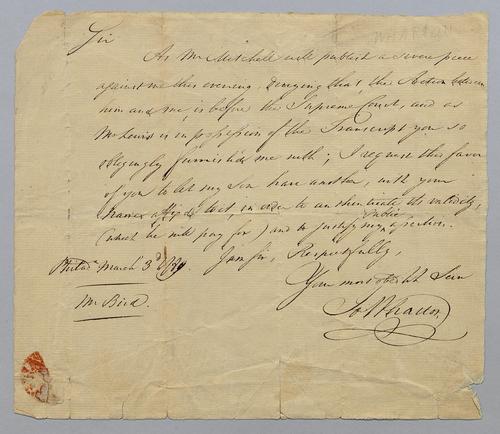 WHARTON
Sir
As Mr Mitchell will publish a severe piece
against me this evening, Denying that, the Action between
him and me, is before the Supreme Court, and as
Mr Lewis is in possession of the Transcript you so
obligingly furnish'd me with; I request the favor
of you to let my Son have another, with your
names affix'd to it, in order to authenticate its entirety,
(which he will pay for) and to justify my Public assertion.
I am Sir, Respectfully,
Philad March 3d
Your most obedt Serv
Mr Bird.
Wharton